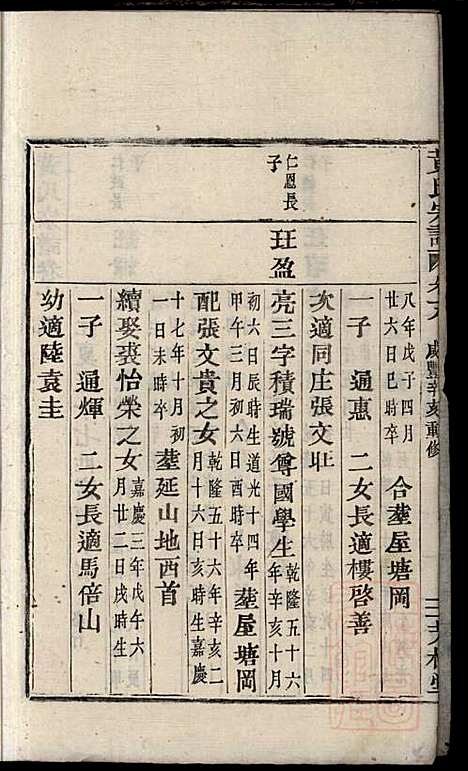 黃氏宗譜 卷之八 咸豐辛亥重修
八年戊子四月
廿六日巳時卒 合塟屋塘岡
一子 通惠 二女長適樓啓善
次適同庄張文
仁恩長
子
珏盈
亮三字積瑞號尊國學生
乾隆五十六
年辛亥十月
初六日辰時生道光十四年
甲午三月初六日酉時卒 塟屋塘岡
配張文貴之女
乾隆五十六年辛亥二
月十六日亥時生嘉慶
十七年十月初
一日未時卒 塟延山地西首
續娶裘怡榮之女
嘉慶三年戊午六
月廿二日戌時生
一子 通輝 二女長適馬倍山
幼適陸袁圭